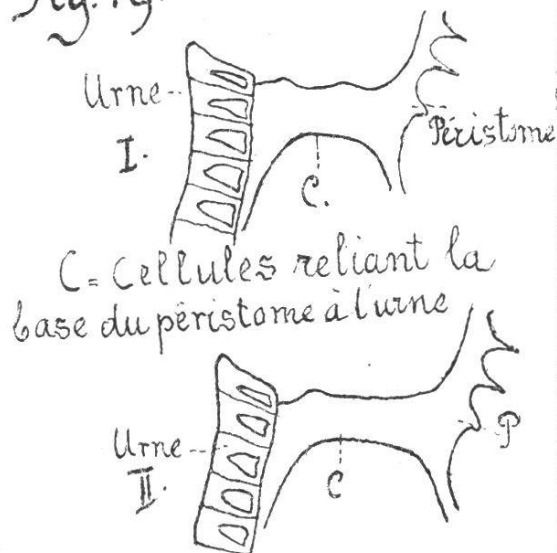 Fig. 19.
Urne
Péristome
I.
C.
C = Cellules reliant la
base du péristome à l'urne
Urne
P
II.
C